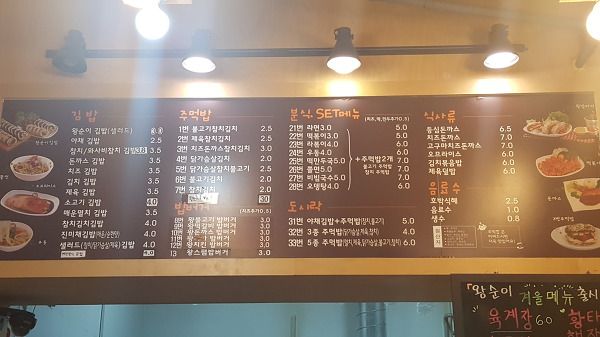 김밥
왕순이 김밥(샐러드)
야채 김밥 2.5
참치/와사비참치 김밥
돈까스 김밥 3.5
치즈 김밥 3.0
김치 김밥 3.0
제육 김밥 3.5
소고기 김밥 4.0
매운멸치 김밥 3.5
참치김치김밥 4.0
진미채김밥 4.0
샐러드 김밥 4.0
주먹밥
1번 불고기참치김치 2.5
2번 제육참치김치 2.5
3번 치즈돈까스참치김치 3.0
4번 닭가슴살김치 2.5
5번 닭가슴살참치불고기 2.5
6번 불고기김치 2.5
7번 참치김치
밥버거 (치즈추가0.5)
8번 왕불고기 밥버거
9번 왕제육 밥버거
10번 왕돈까스 밥버거
11번 왕참치 밥버거
12번 왕치킨 밥버거
13 왕스팸밥버거 3.0
분식. SET메뉴
21번 라면3.0 5.0
22번 떡볶이3.0 5.0
23번 라볶이4.0 6.0
24번 우동4.0 6.0
25번 떡만두국5.0 7.0
26번 쫄면5.0 7.0
27번 비빔국수5.0 7.0
28번 오뎅탕4.0 6.0
+주먹밥2개
불고기 주먹밥
참치 주먹밥
도시락
31번 야채김밥+주먹밥(참치,불고기) 5.0
32번 3종 주먹밥 4.0
33번 5종 주먹밥 5.0
식사류
등심돈까스 6.5
치즈돈까스 7.0
고구마치즈돈까스 7.0
오므라이스 6.0
김치볶음밥 6.0
제육덮밥 6.0
음료수
호박식혜 2.5
음료수 1.0
생수 0.8
「왕순이 겨울메뉴 출시
육계장 6.0 황태